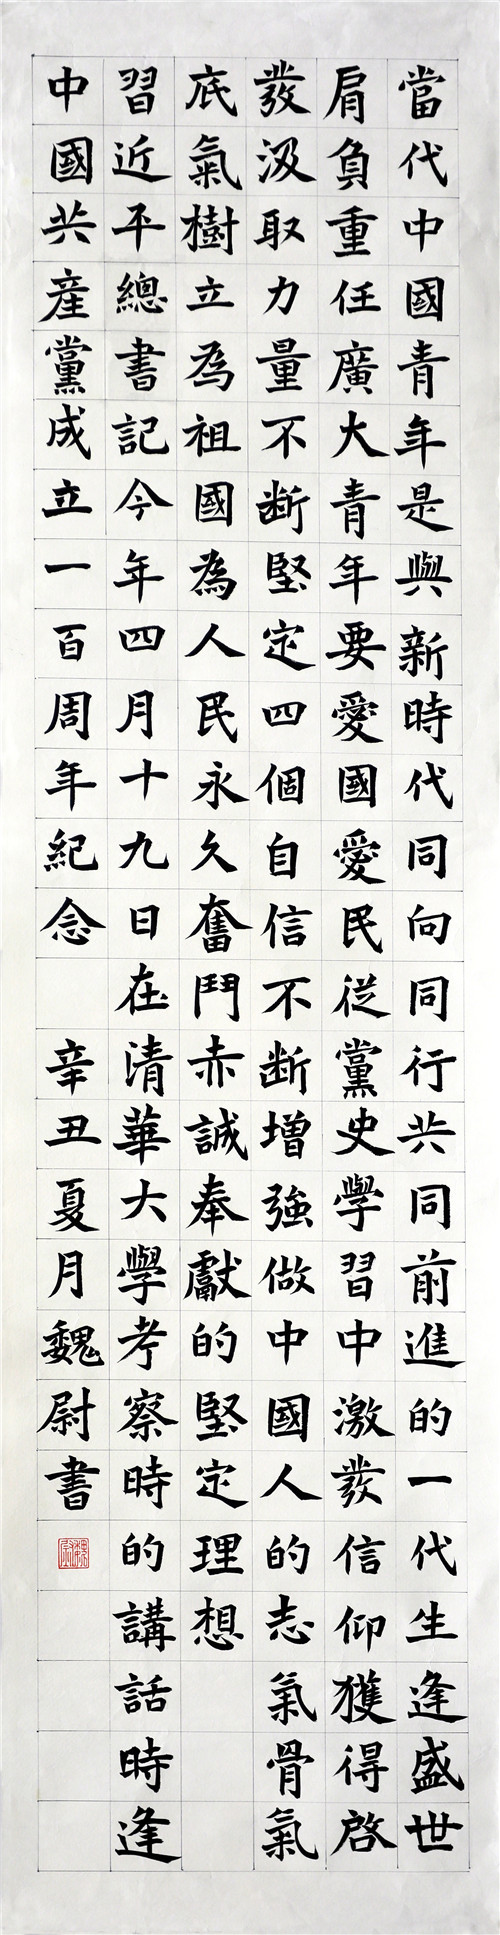 當代中國青年是與新時代同向同行共同前進的一代生逢盛世
肩負重任廣大青年要愛國愛民從黨史學習中激發信仰獲得啟
發汲取力量不斷堅定四個自信不斷增強做中國人的志氣骨氣
底氣樹立為祖國為人民永久奮鬥赤誠奉獻的堅定理想
習近平總書記今年四月十九日在清華大學考察時的講話時逢
中國共產黨成立一百周年紀念 辛丑夏月魏尉書
魏尉